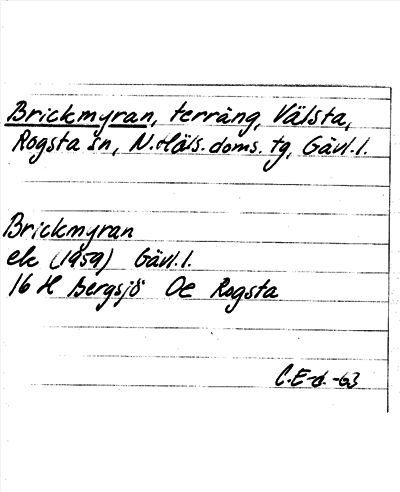 Brickmyran, terräng, Välsta,
Rogsta sn, N. Häls. doms. tg, Gävl. l.
Brickmyran
ek (1959) Gävl. l.
16 H Bergsjö Oe Rogsta
C.E-d.-63